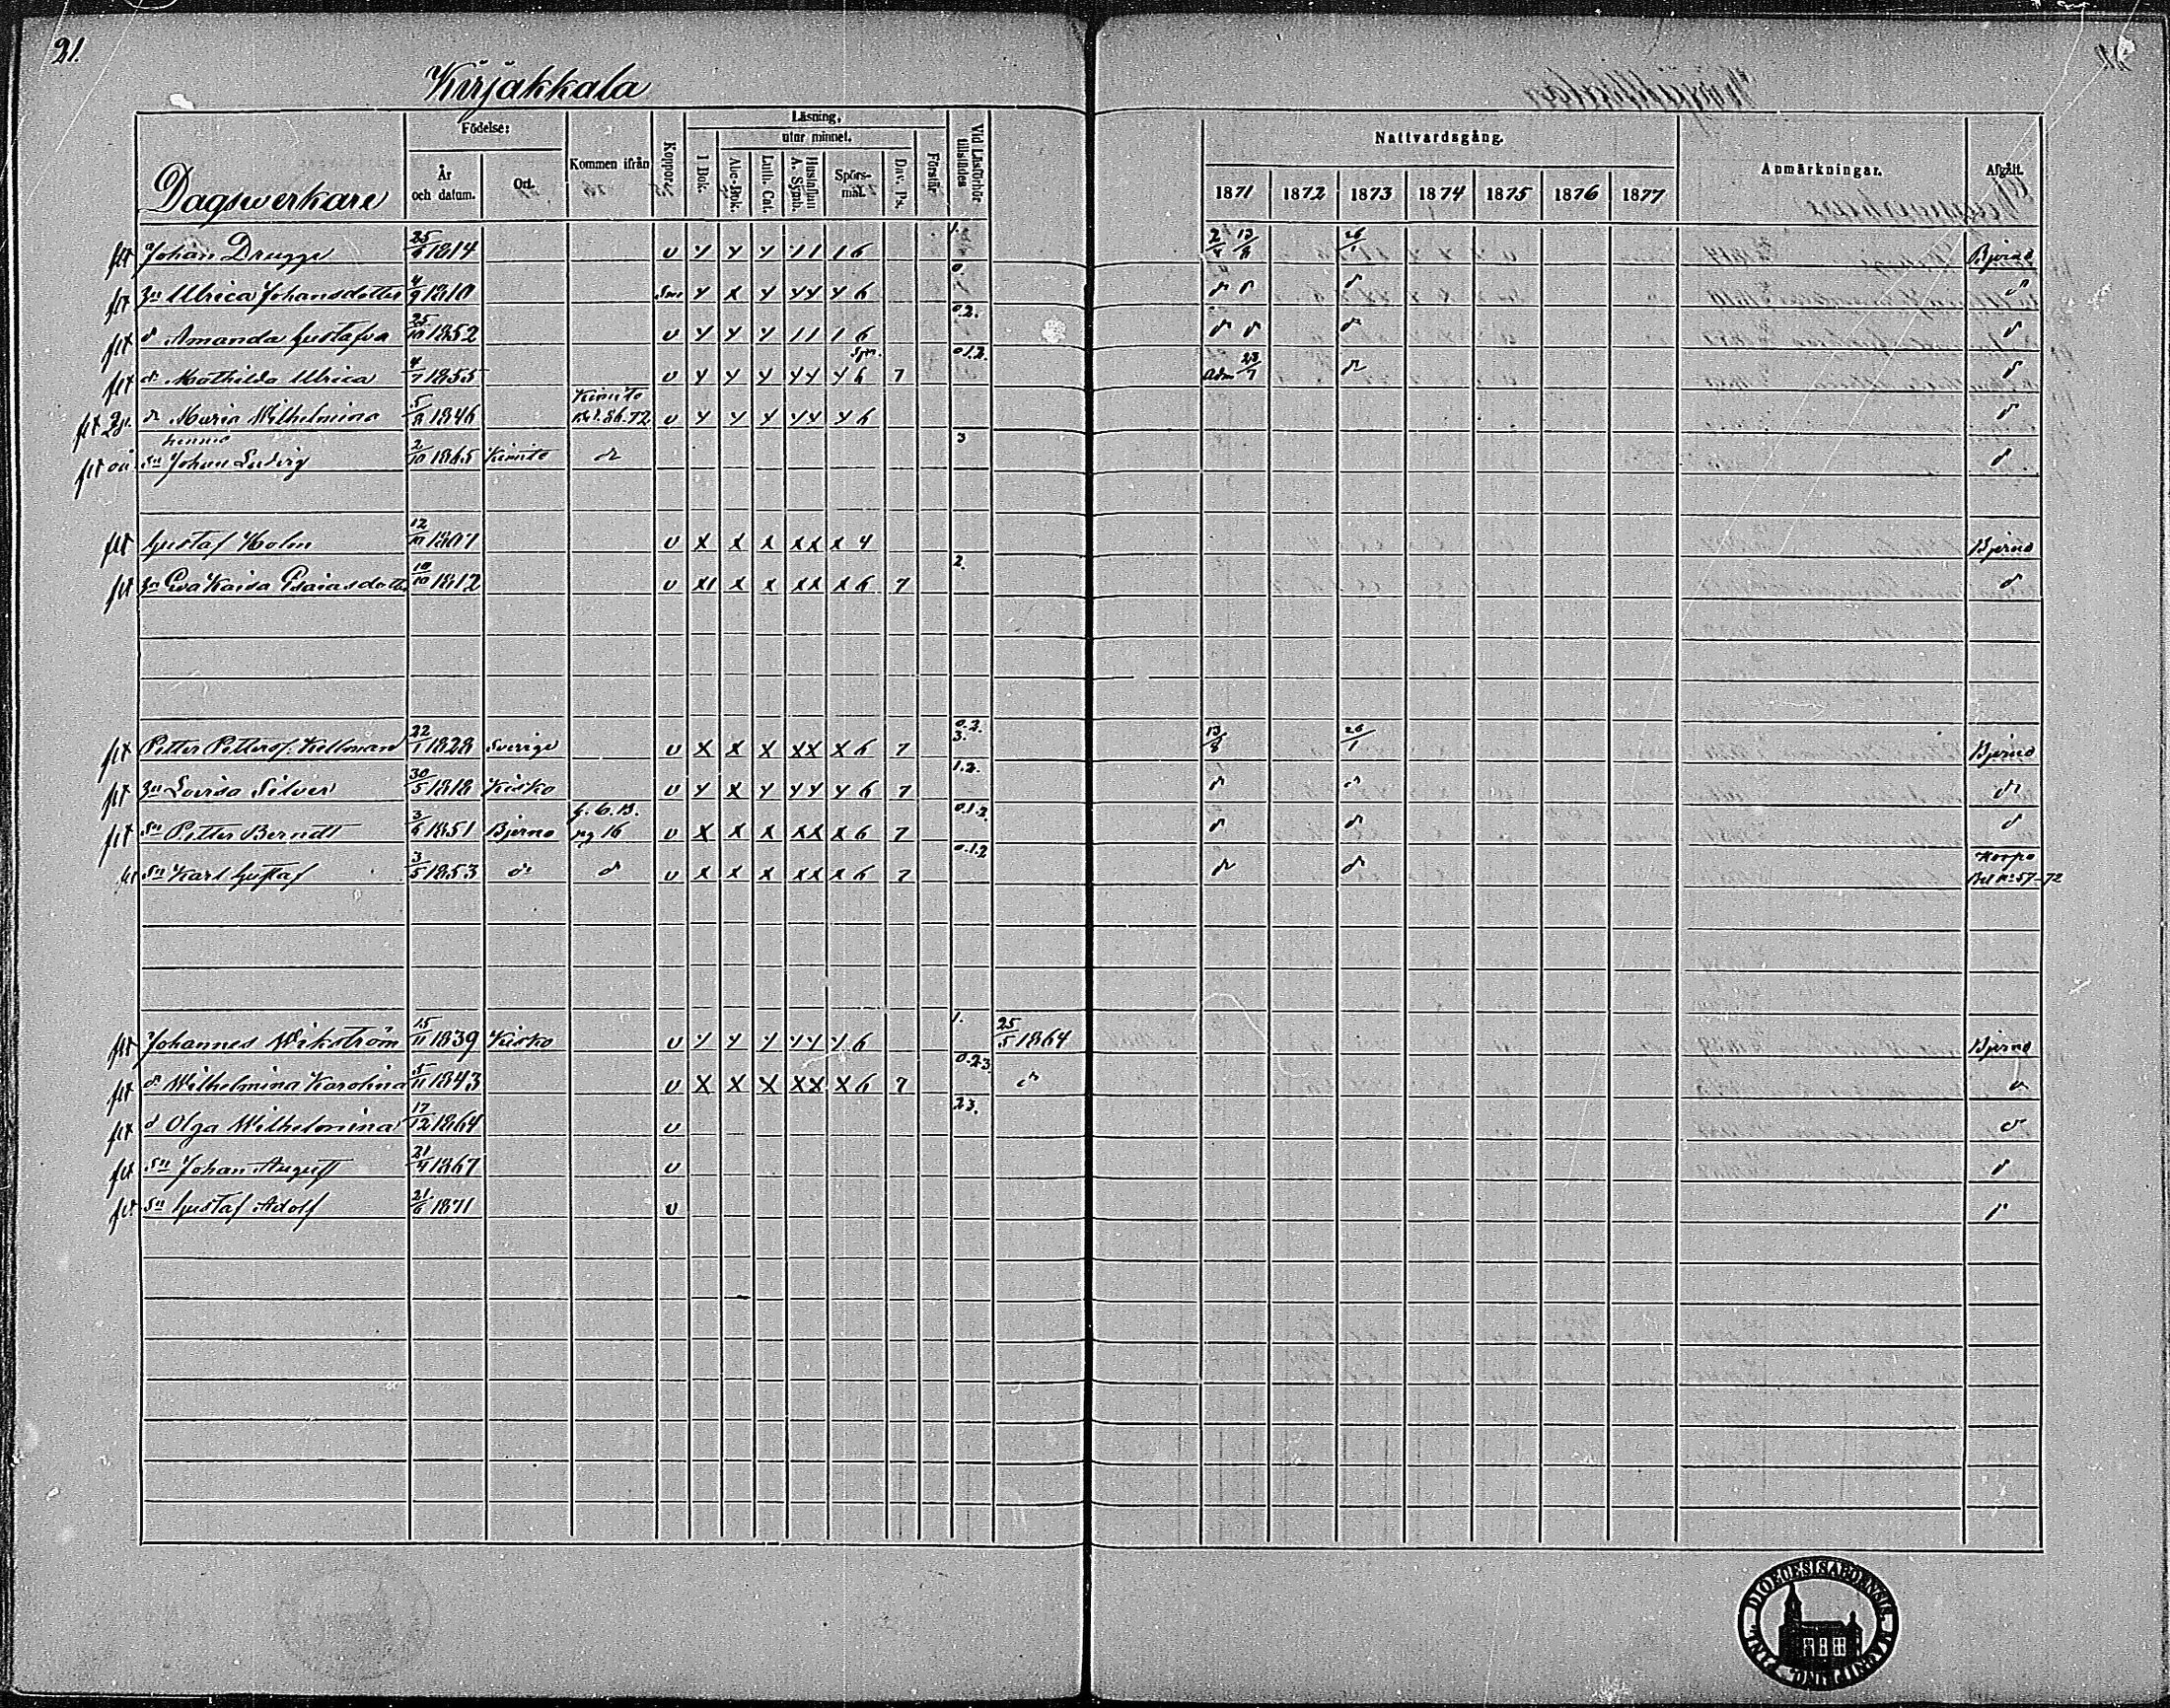 21.
Kirjakkala
Dagswerkare
Födelse:
År och datum.
Ort.
Kommen ifrån
Koppor.
Läsning,
I Bok.
utur minnet.
Abc-Bok.
Luth. Cat.
Hustaflan A. Symb.
Spörs-mål.
Dav. Ps.
Förstår
Vid Läsförhör tillstädes
Nattvardsgång.
1871 1872 1873 1874 1875 1876 1877
Anmärkningar.
Afgått.
flt Johan Drugge 1814 v 1 6 1. 2/4 13/8 26/1 Bjerno
flt hu Ulrica Johansdotter 4/9 1810 y x y yy y 6 0. d d d d
flt d Amanda Gustafva 25/10 1852 v y y y 11 1 6 0.2. d d d d
flt d Mathilda Ulrica 4/7 1855 v y y y yy y 6 7 0.1.2. Adm 23/7 d d
flt d Maria Wilhelmina 5/8 1846 Kimito v y y y yy y 6 d
flt hennes sn Johan Ludvig 2/10 1865 Kimito d 3 d
flt Gustaf Holm 12/10 1807 v x x x xx x 4 Bjerno
flt hu Eva Kaisa Esaiasdotter 10/10 1812 v x1 x x xx x 6 7 2. d
flt Petter Petterss. Kellman 22/1 1828 Sverige v x x x xx x 6 7 0.2. 3. 13/8 26/1 Bjerno
flt hu Lovisa Silver 30/5 1818 Kisko v y x y yy y 6 7 1.2. d d d
flt sn Petter Berndt 3/6 1851 Bjerno pg 16 v x x x xx x 6 7 0.1.2. d d d
sn Karl Gustaf 3/5 1853 d d v x x x xx x 6 7 0.1.2 d d Korpo Bet No 57-72
flt Johannes Wikström 15/11 1839 Kisko v y y y yy y 6 1. 25/5 1864 Bjerno
flt d Wilhelmina Karolina 5/11 1843 v x x x xx x 6 7 0.2.3. d d
flt d Olga Wilhelmina 17/12 1864 v 2.3. d
flt sn Johan August 21/4 1867 v d
flt sn Gustaf Adolf 21/6 1871 v d
DIOECESIS ABOENSIS